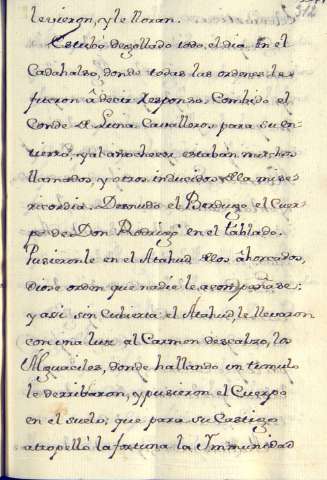 312
le vieron, y le lloran.
Estubo degollado todo el dia en el
Cadahalso, donde todas las ordenes le
fueron â decir responso. Combido el
Conde de Luna Cavalleros para su en-
tierro, y al año checer estaban muchos
llamados, y otros inducidos de la mise-
ricordia. Desnudo el Berdugo el Cuer-
po de Don Rodrigo en el tablado.
Pusieronle en el Atahud de los âhorcados,
diose orden que nadie le acompañase:
y asi sin Cubierta el Atahud, le llevaron
con una luz al Carmen descalzo, los
Alguaciles, donde hallando un tumulo
le derribaron, y pusieron el Cuerpo
en el suelo; que para su Castigo
atropellò la fortuna la Ymmunidad